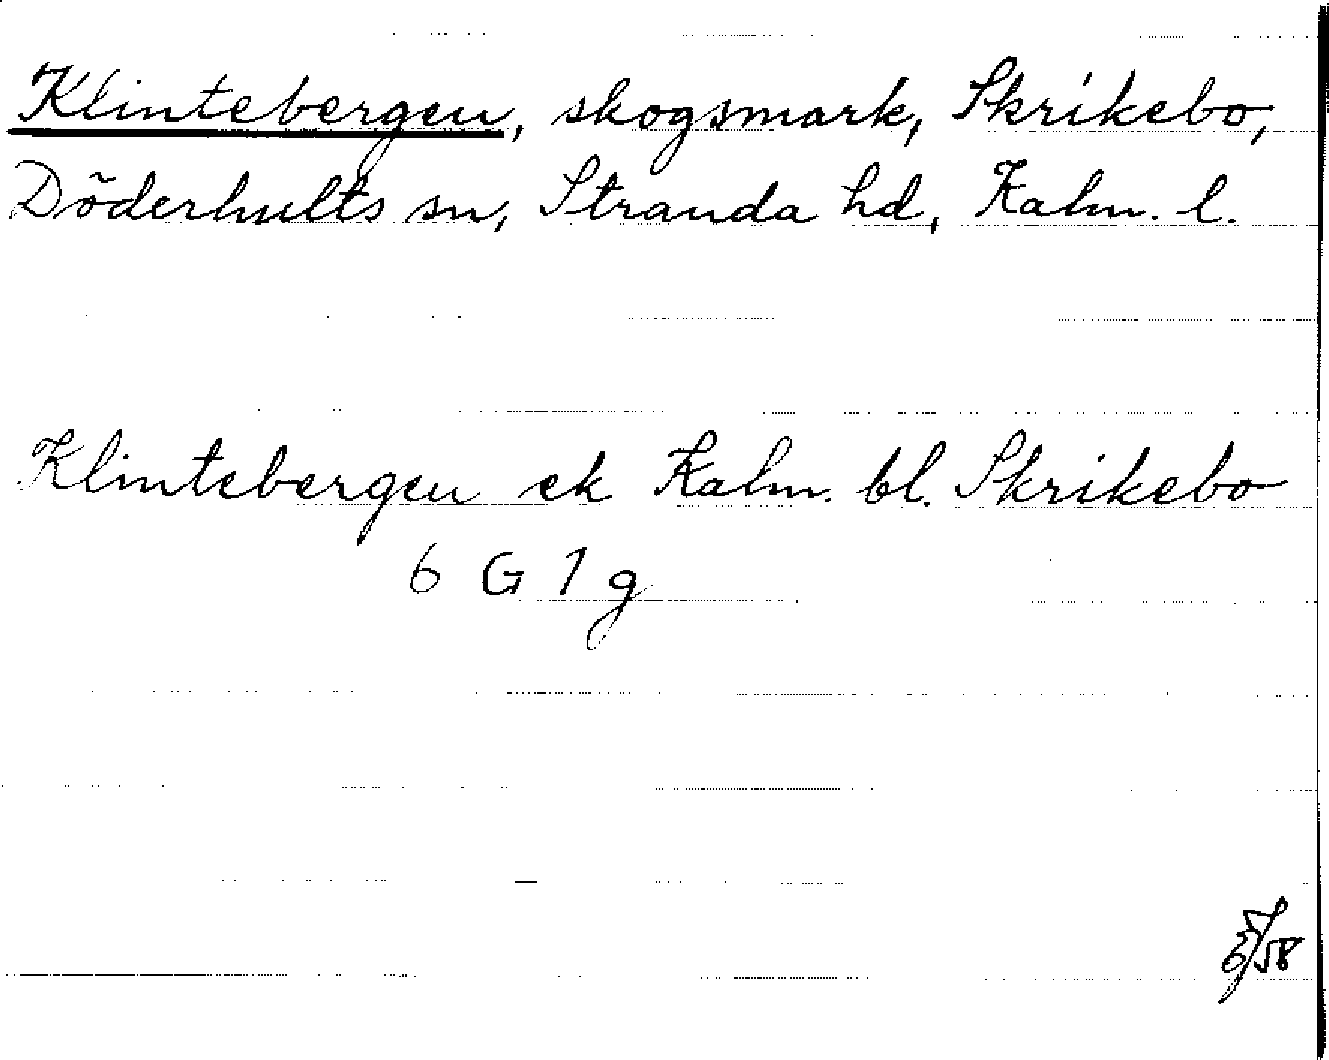 Klintebergen, skogsmark, Skrikebo,
Döderhults sn, Stranda hd, Kalm. l.
Klintebergen ek Kalm. bl. Skrikebo
6 G 1 g